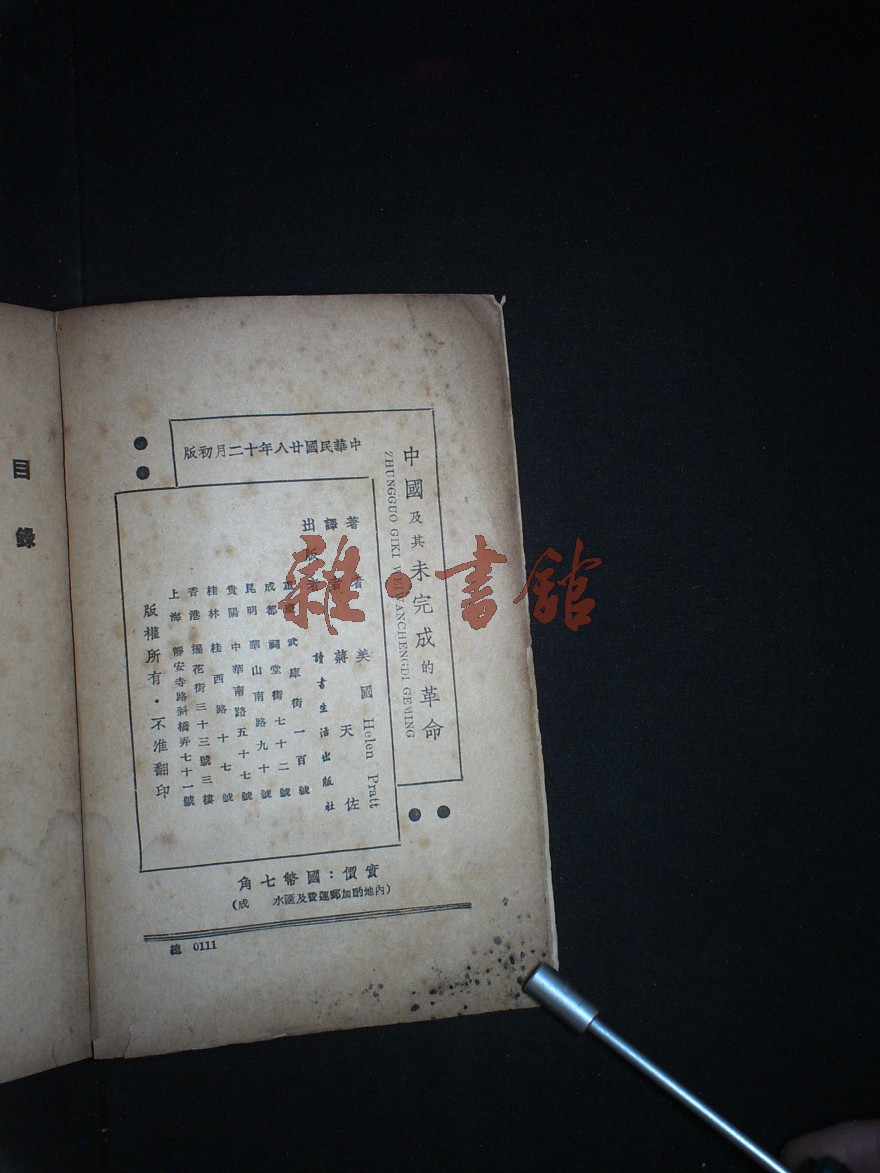 中國及其未完成的革命
ZHUNGGUO GIKI WEIWANCHENGDI GEMING
版初月二十年八廿國民華中
著者 美國 Helen Pratt
譯者 蔣天佐
出版者 讀書生活出版社
重慶 武庫街一百號
成都 祠堂街七十二號
昆明 華山南路九十號
貴陽 中華南路五十七號
桂林 桂西路十七號
香港 擺花街三十三號三樓
上海 靜安寺路斜橋弄七十一號
版權所有·不准翻印
角七幣國：價實
(成 水匯及費運郵加酌地內)
總 0111
目錄
雜·書館